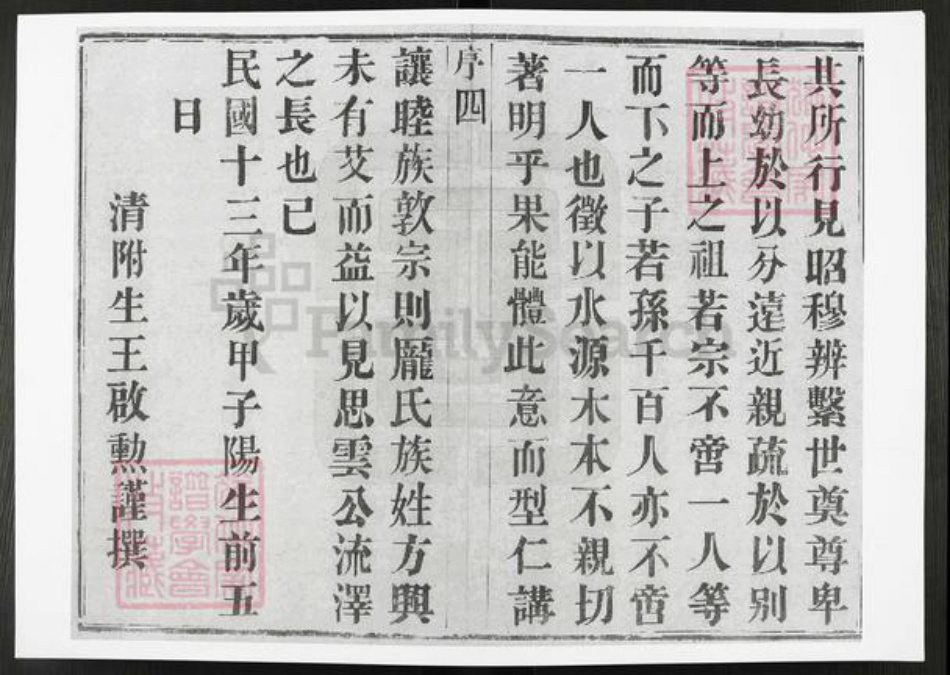 其所行見昭穆辨繫世奠尊卑
長幼於以分遠近親疏於以别
等而上之祖若宗不啻一人等
而下之子若孫千百人亦不啻
一人也徵以水源木本不親切
著明乎果能體此意而型仁講
序四
讓睦族敦宗則龐氏族姓方興
未有艾而益以見思雲公流澤
之長也已
民國十三年歲甲子陽生前五
日
清附生王啟勲謹撰
FamilySearch